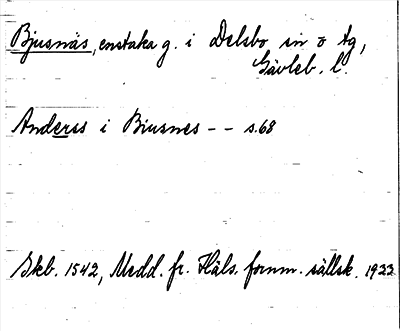 Bjusnäs, enstaka g. i Delsbo sn o tg,
Gävleb. l.
Anders i Biusnes -- s. 68
Skb. 1542, Medd. fr. Häls. fornm. sällsk. 1922